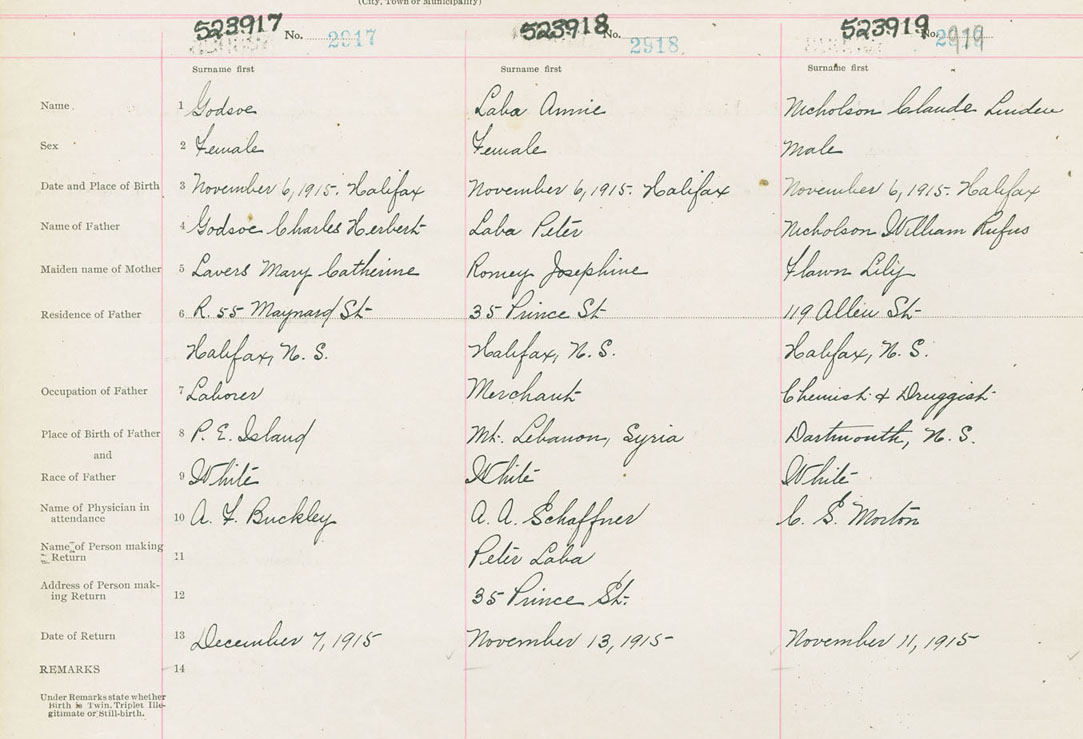 (City, Town or Municipality)
523917 No. 2917 523918 No. 2918 523919 No. 2919
Surname first Surname first Surname first
Name 1 Godsoe Laba Annie Nicholson Claude Linden
Sex 2 Female Female Male
Date and Place of Birth 3 November 6, 1915. Halifax November 6, 1915. Halifax November 6, 1915. Halifax
Name of Father 4 Godsoe Charles Herbert Laba Peter Nicholson William Rufus
Maiden name of Mother 5 Lavers Mary Catherine Romey Josephine Flawn Lily
Residence of Father 6 R. 55 Maynard St 35 Prince St 119 Allen St
Halifax, N. S. Halifax, N. S. Halifax, N. S.
Occupation of Father 7 Laborer Merchant Chemist & Druggist
Place of Birth of Father 8 P. E. Island Mt. Lebanon, Syria Dartmouth, N. S.
and
Race of Father 9 White White White
Name of Physician in
attendance 10 A. F. Buckley A. A. Schaffner C. S. Morton
Name of Person making
Return 11 Peter Laba
Address of Person mak-
ing Return 12 35 Prince St.
Date of Return 13 December 7, 1915 November 13, 1915 November 11, 1915
REMARKS 14
Under Remarks state whether
Birth is Twin, Triplet Ille-
gitimate or Still-birth.